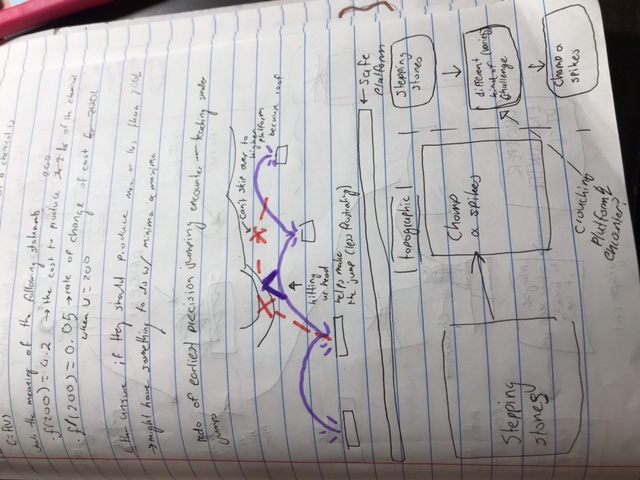 C=f(V)
of a chemical
what's the meaning of the following statements
· f(200) = 4.2 → the cost to produce 200 of the chemical
· f'(200) = 0.05 → rate of change of cost for 200L
when V = 200
unsure if they should produce more or less than 200L
→ might have something to do w/ minima & maxima
redo of earliest precision jumping encounter — teaching smaller
jumps
can't skip over to
higher
platform
because roof
hitting
ur head
helps make
the jump (less frustrating)
← Safe
platform
topographic
Stepping
stones
Chomp
& spikes
Stepping
stones
different
kind of (variety)
challenge
Chomp &
spikes
Crouching
platform
encounter?